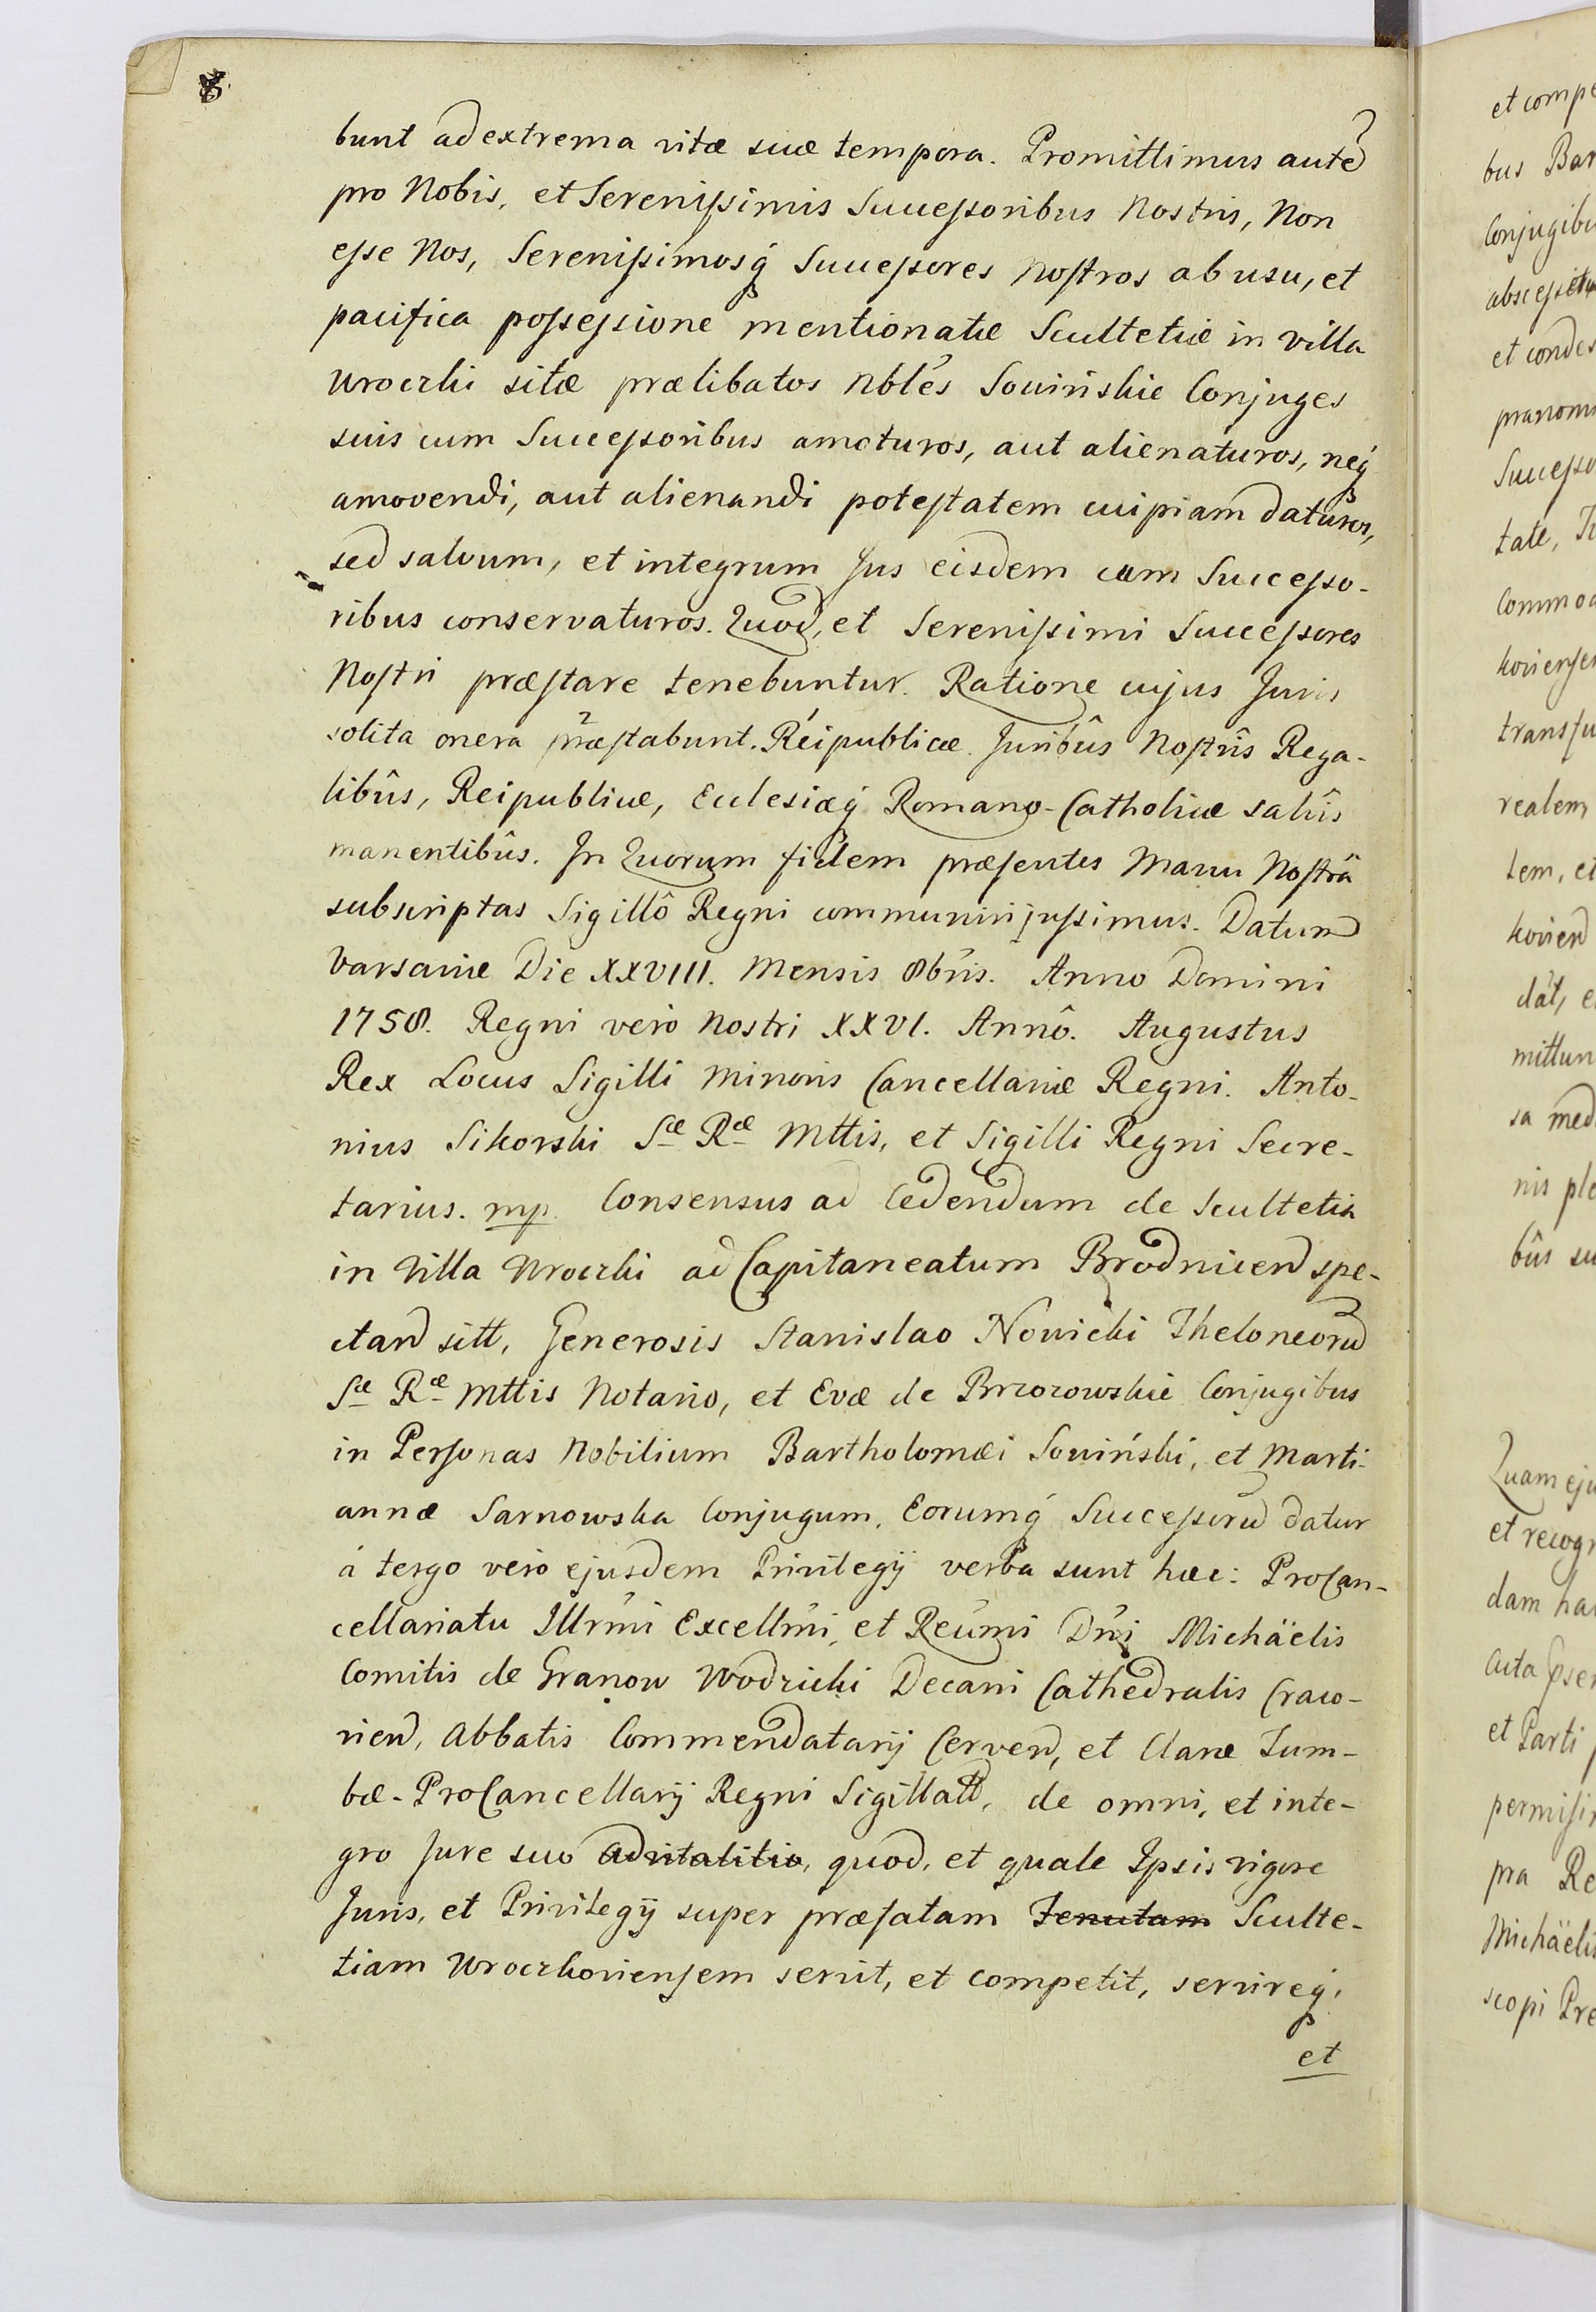 8.
bunt ad extrema vitæ suæ tempora. Promittimus aute
pro Nobis, et Serenissimis Successoribus Nostris, Non
esse Nos, Serenissimosq́ Successores Nostros ab usu, et
pacifica possessione mentionatæ Scultetiæ in villa
Wroczki sitæ prælibatos Nbles Sowińskie Conjuges
suis cum Successoribus amoturos, aut alienaturos, neq́
amovendi, aut alienandi potestatem cuipiam daturos,
sed salvum, et integrum Jus eisdem cum Successo-
ribus conservaturos. Quod, et Serenissimi Successores
Nostri præstare tenebuntur. Ratione cujus Juris
solita onera præstabunt. Reipublicæ. Juribûs Nostrîs Rega-
libûs, Reipublicæ, Ecclesiæq́ Romano-Catholicæ salvîs
manentibûs. In Quorum fidem præsentes Manu Nostrâ
subscriptas Sigillô Regni communiri jussimus. Datum
Varsaviæ Die XXVIII. Mensis 8bris. Anno Domini
1758. Regni verò Nostri XXVI. Annô. Augustus
Rex Locus Sigilli Minoris Cancellariæ Regni. Anto-
nius Sikorski Sæ Ræ Mttis, et Sigilli Regni Secre-
tarius. mp. Consensus ad Cedendum de Scultetia
in Villa Wroczki ad Capitaneatum Brodnicen spe-
ctan sitt, Generosis Stanislao Nowicki Theloneoru
Sæ Ræ Mttis Notario, et Evæ de Brzozowskie Conjugibus
in Personas Nobilium Bartholomæi Sowiński, et Marti-
annæ Sarnowska Conjugum, Eorumq́ Successoru datur
à tergo verò ejusdem Privilegij verba sunt hæc: ProCan-
cellariatu Illrmi Excellmi, et Reumi Dni Michäelis
Comitis de Granow Wodzicki Decani Cathedralis Craco-
vien, Abbatis Commendatarij Cerven, et Claræ Tum-
bæ- ProCancellarij Regni Sigillatt, de omni, et inte-
gro Jure suo advitalitio, quod, et quale Ipsis vigore
Juris, et Privilegij super præfatam Tenutam Sculte-
tiam Wroczkoviensem servit, et competit, servireq́,
et
et compe
bus Bar
Conjugibu
et condes
prænomi
Successo
tate,
Commod
koviensem
transfu
realem
tem, et
kovien
dat, e
mittun
sa med
nis ple
bûs su
Quam eju
et recogn
dam ha
et Parti
permisi
pra Re
Michäelis
scopi Pre